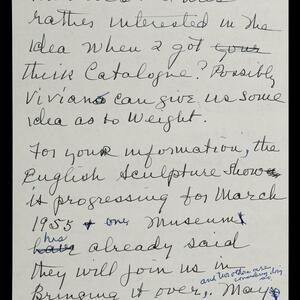 rather interested in the
idea when I got your
thick Catalogue? Possibly
Vivian can give us some
idea as to Weight.
For your information, the
English Sculpture Show
is progressing for March
1955 + one Museum
has already said
they will join us in
Bringing it over, May